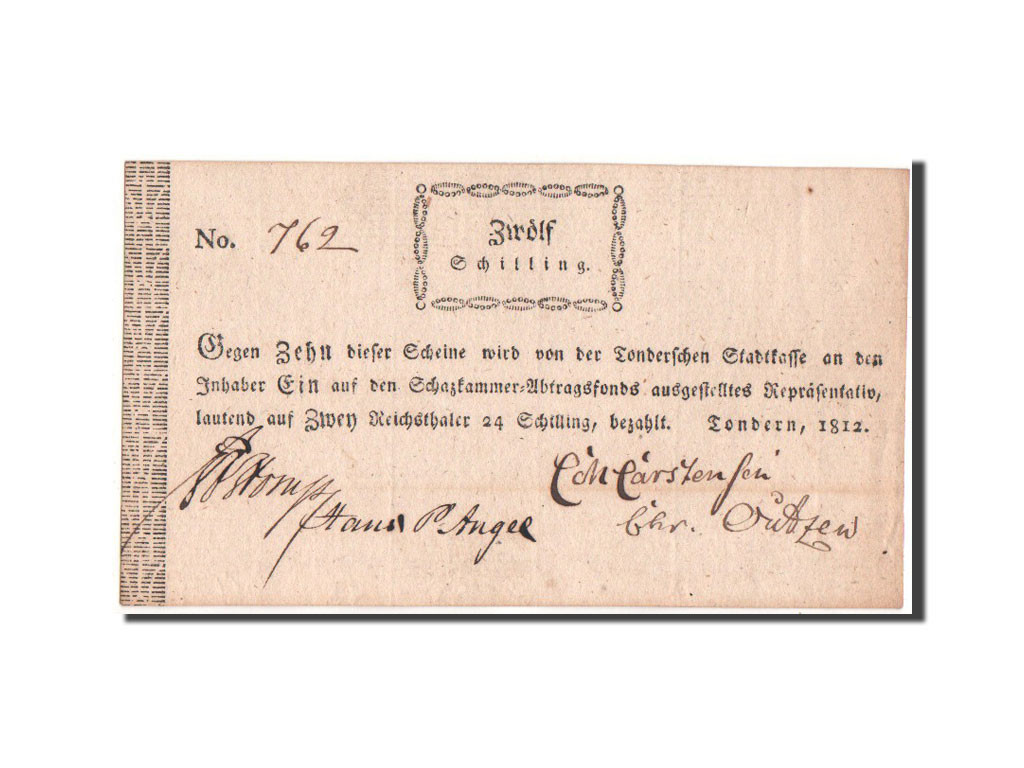 No. 762
Zwölf
Schilling.
Gegen Zehn dieser Scheine wird von der Tonderschen Stadtkasse an den
Inhaber Ein auf den Schazkammer-Abtragsfonds ausgestelltes Repräsentativ,
lautend auf Zwey Reichsthaler 24 Schilling, bezahlt. Tondern, 1812.
Carstensen
Hans P Angel
Chr. Outzen